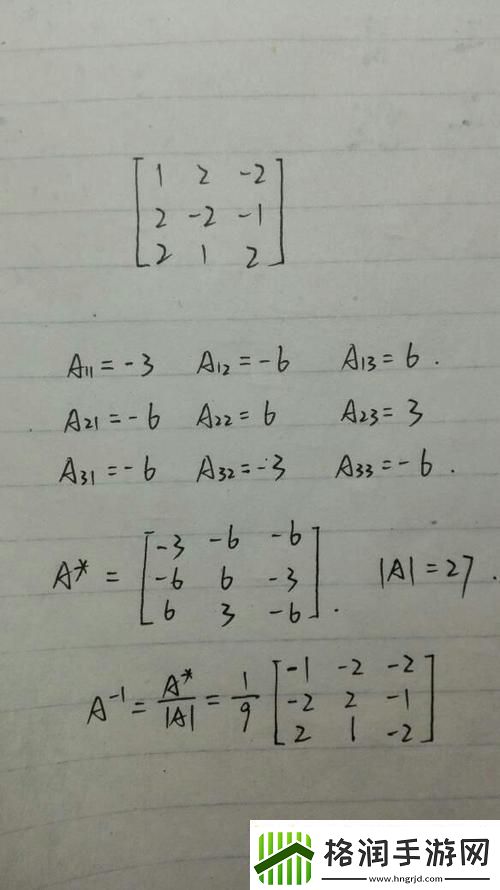 1 2 -2
2 -2 -1
2 1 2
A11 = -3 A12 = -6 A13 = 6 .
A21 = -6 A22 = 6 A23 = 3
A31 = -6 A32 = -3 A33 = -6 .
A* = [-3 -6 -6
-6 6 -3
6 3 -6] . |A| = 27 .
A⁻¹ = A*/|A| = 1/9 [-1 -2 -2
-2 2 -1
2 1 -2]
格润手游网
www.hngrjd.com